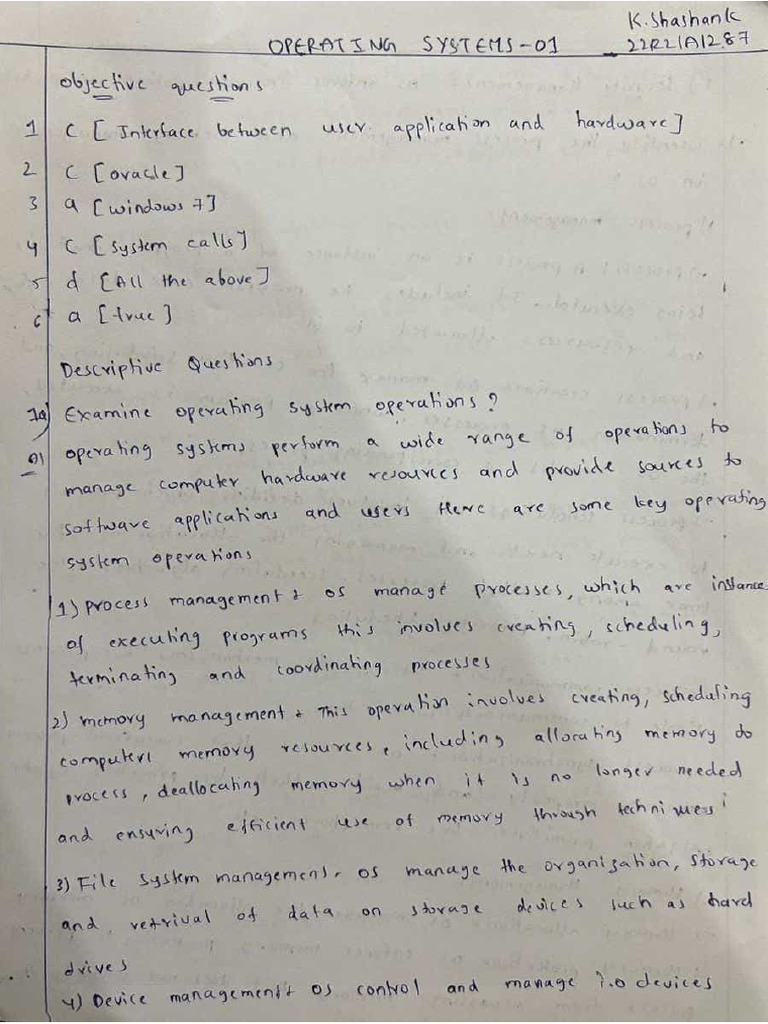 K. Shashank
OPERATING SYSTEMS-01 22R21A1287
Objective questions
1 C [Interface between user application and hardware]
2 C [oracle]
3 a [windows 7]
4 C [system calls]
5 d [All the above]
6 a [true]
Descriptive Questions
1a) Examine operating system operations?
operating systems perform a wide range of operations, to
manage computer hardware resources and provide sources to
software applications and users Here are some key operating
system operations
1) process management: os manage processes, which are instance
of executing programs this involves creating, scheduling,
terminating and coordinating processes
2) memory management: This operation involves creating, scheduling
computers memory resources, including allocating memory do
process, deallocating memory when it is no longer needed
and ensuring efficient use of memory through
3) File system management, os manage the organization, storage
and retrival of data on storage devices such as hard
drives
4) Device management: os control and manage I.O devices